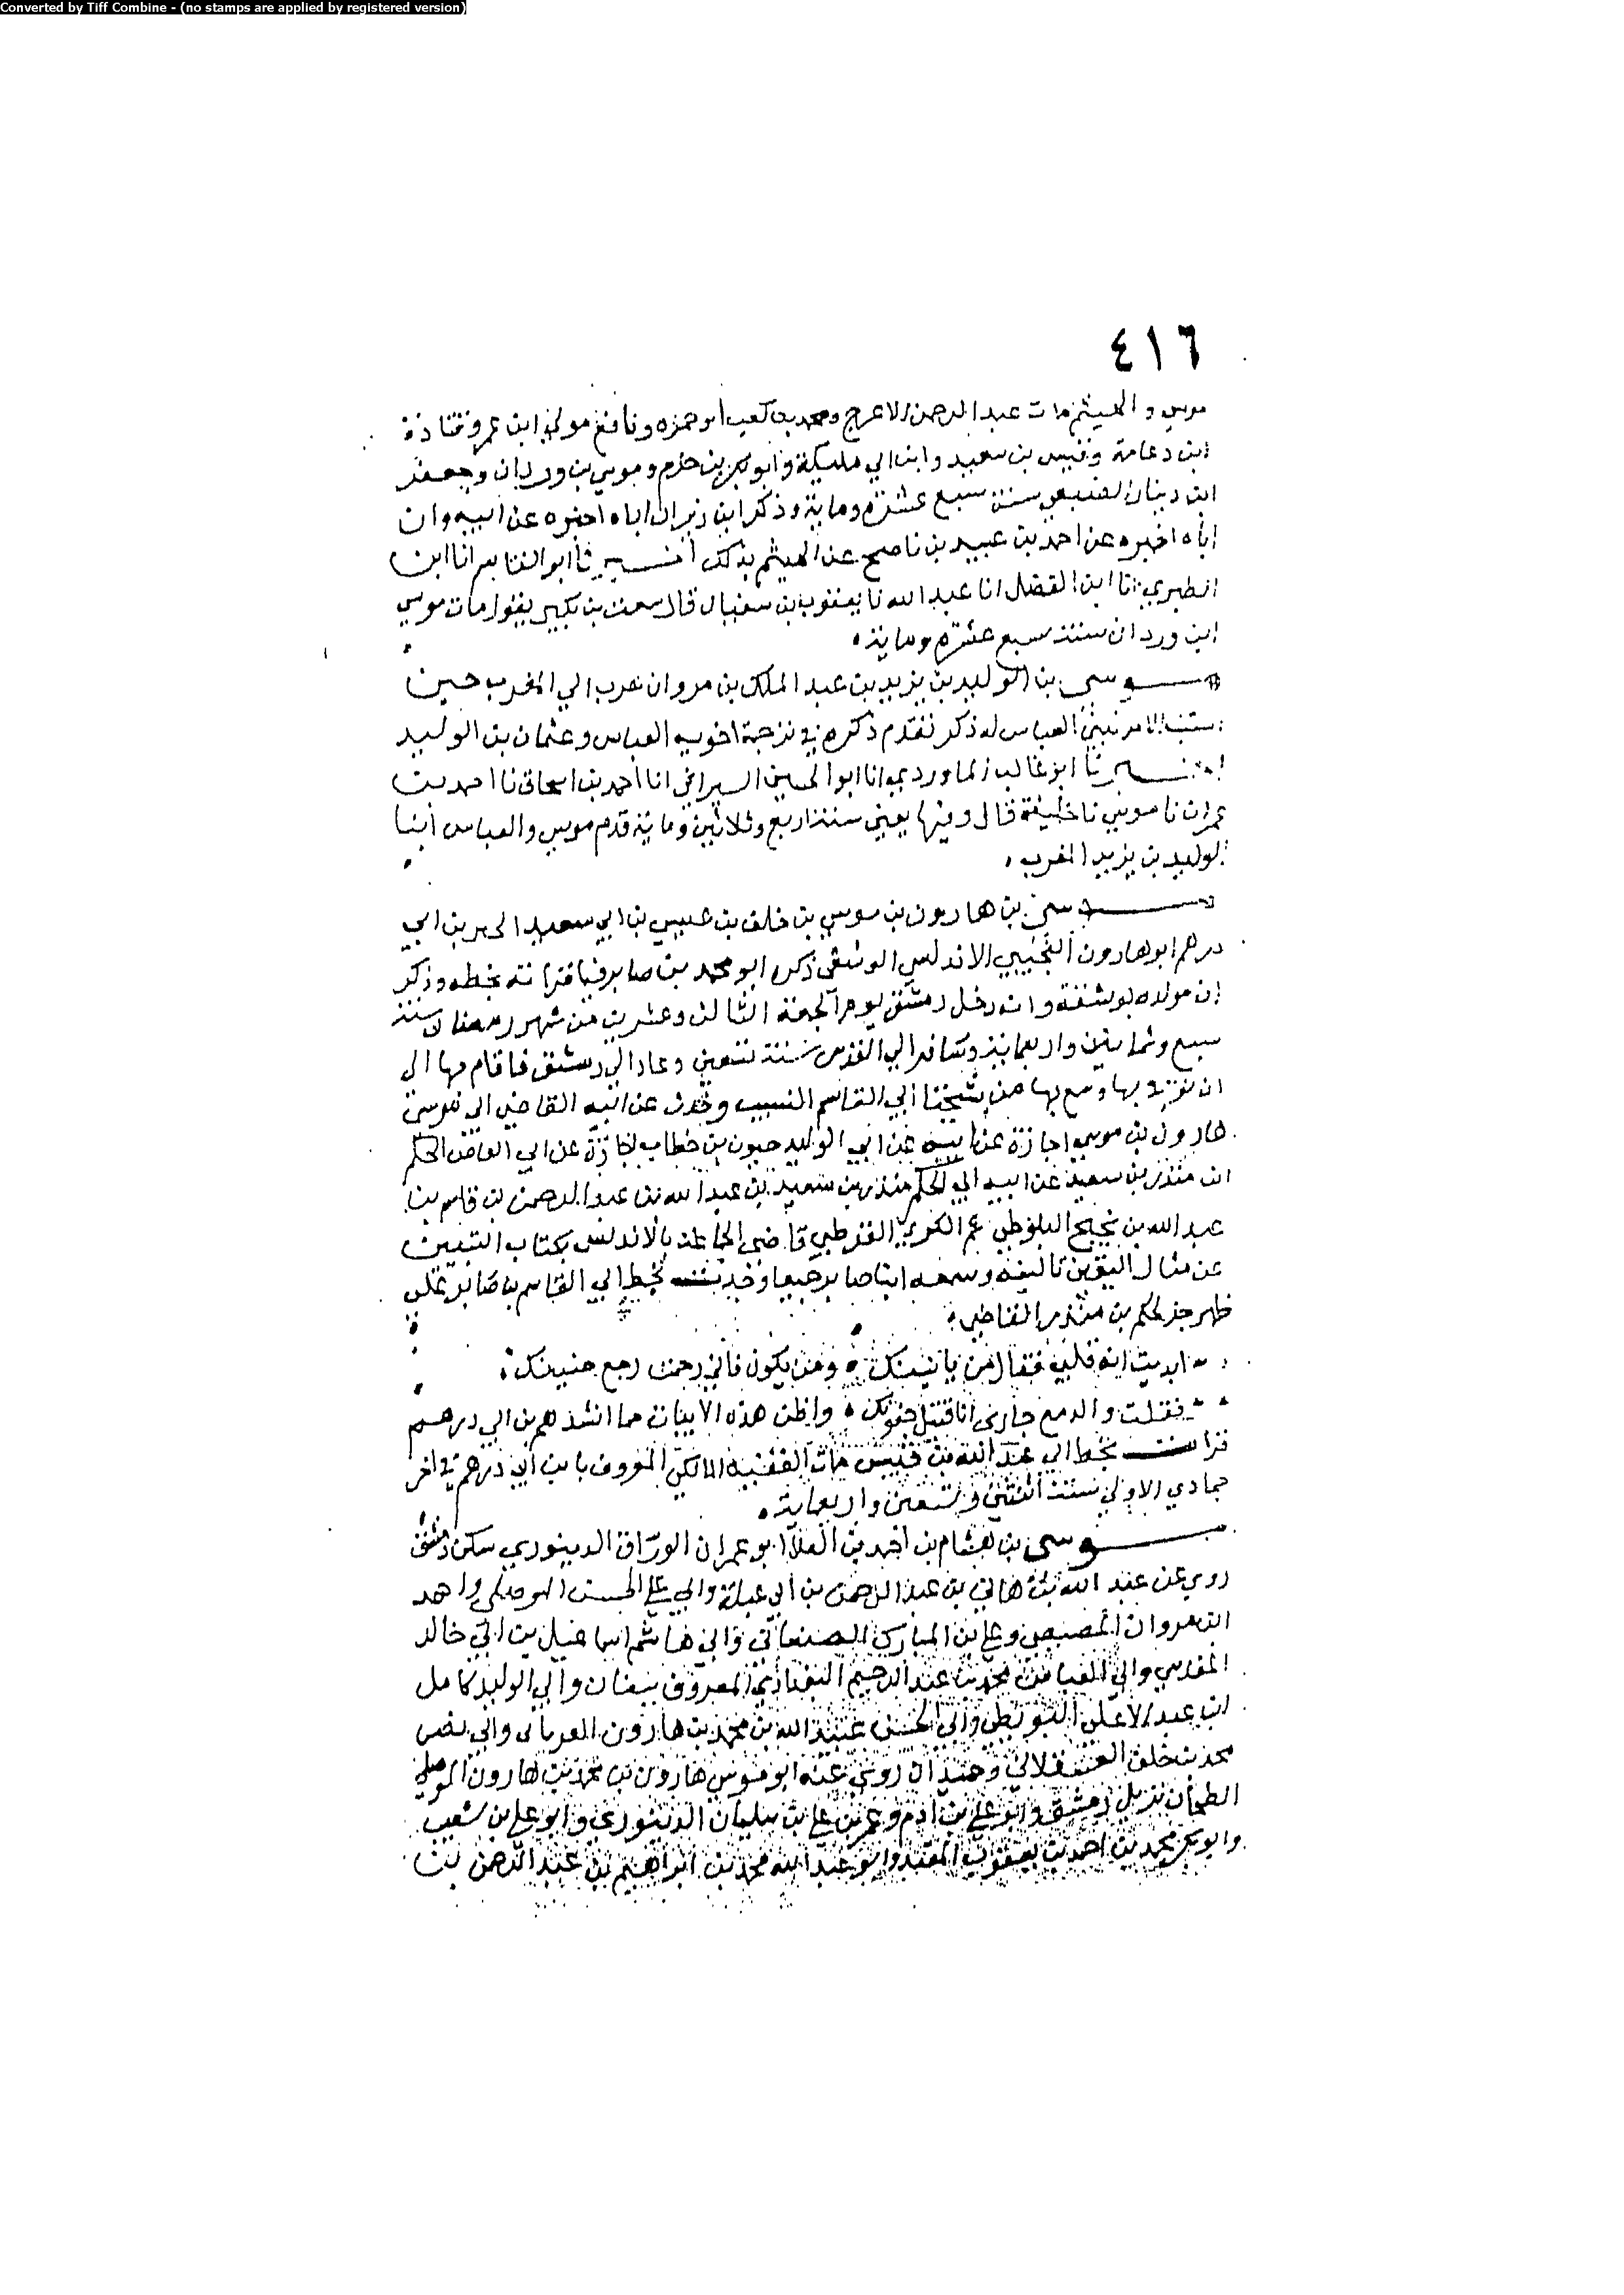 Converted by Tiff Combine - (no stamps are applied by registered version)
٤١٦
موسى والهيثم مات عبد الرحمن الاعرج ومحمد بن كعب ابو حمزه ونافع مولى ابن عمر وقتادة
ابن دعامة وقيس بن سعيد وابن ابي مليكة وابو بكر بن حزم وموسى بن وردان وجعفر
ابن دينار سنة سبع عشرة وماية وذكر ابن زبر ان اباه اخبره عن ابيه وان
اباه اخبره عن احمد بن عبيد بن ناصح عن الهيثم بذلك اخبرنا ابو الغنايم انا ابن
الطبري انا ابن الفضل انا عبد الله نا يعقوب بن سفيان قال سمعت بن بكير يقول مات موسى
ابن وردان سنة سبع عشرة وماية
موسى بن الوليد بن يزيد بن عبد الملك بن مروان هرب الى المغرب حين
استتب الامر لبني العباس له ذكر تقدم ذكره في ترجمة اخويه العباس وعثمان بن الوليد
اخبرنا ابو غالب الماوردي انا ابو الحسين السيرافي انا احمد بن اسحاق نا احمد بن
عمران نا موسى نا خليفة قال وفيها يعني سنة اربع وثلاثين وماية قدم موسى والعباس ابنا
الوليد بن يزيد المغرب
موسى بن هارون بن موسى بن خلف بن عيسى بن ابي سعيد الخير بن ابي
درهم ابو هارون التجيبي الاندلسي الوشقي ذكره ابو محمد بن صابر فيما قراته بخطه وذكر
ان مولده بوشقة وانه دخل دمشق يوم الجمعة الثالث وعشرين من شهر رمضان سنة
سبع وثمانين واربعماية وسافر الى القدس سنة تسعين وعاد الى دمشق فاقام بها الى
ان توفي بها وسمع بها من شيخنا ابي القاسم النسيب وحدث عن ابيه القاضي ابي موسى
هارون بن موسى اجازة عن ابيه عن ابي الوليد حيون بن خطاب اجازة عن ابي العاص الحكم
ابن منذر بن سعيد عن ابيه ابي الحكم منذر بن سعيد بن عبد الله بن عبد الرحمن بن قاسم بن
عبد الله بن نجيح البلوطي ثم الكزني القرطبي قاضي الجماعة بالاندلس بكتاب التبيين
عن مثال اليقين تاليفه وسمعه ابنا صابر جميعا وجدت بخط ابي القاسم بن صابر على
ظهر جزء لحكم بن منذر القاضي
فقال من ياتينك ومن يكون فاني رحمت رجع حنينك
فقلت والدمع جاري انا قتيل جفونك واظن هذه الابيات مما انشدهم بن ابي درهم
قرات بخط ابي عبد الله بن قبيس مات الفقيه المالكي المعروف بابن ابي درهم في اخر
جمادي الاولى سنة اثنتين وتسعين واربعماية
موسى بن هشام بن احمد بن العلا ابو عمران الوراق الدينوري سكن دمشق
روى عن عبد الله بن هاني بن عبد الرحمن بن ابي عبلة وابي علي الحسن الموصلي واحمد
ابن مروان المصيصي وعلي بن المبارك الصنعاني وابي هاشم اسماعيل بن ابي خالد
المقدسي وابي العباس محمد بن عبد الرحيم البغدادي المعروف ببنان وابي الوليد كامل
ابن عبد الاعلى وابي الحسن عبيد الله بن محمد بن هارون الفريابي وابي نصر
محمد بن خلف العسقلاني وحمدان روى عنه ابو موسى هارون بن محمد بن هارون الموصلي
الطحان نزيل دمشق وابو علي بن ادم وعمر بن علي بن سليمان الدينوري وابو علي بن شعيب
وابو بكر محمد بن احمد بن يعقوب المفيد وابو عبد الله محمد بن ابراهيم بن عبد الرحمن بن